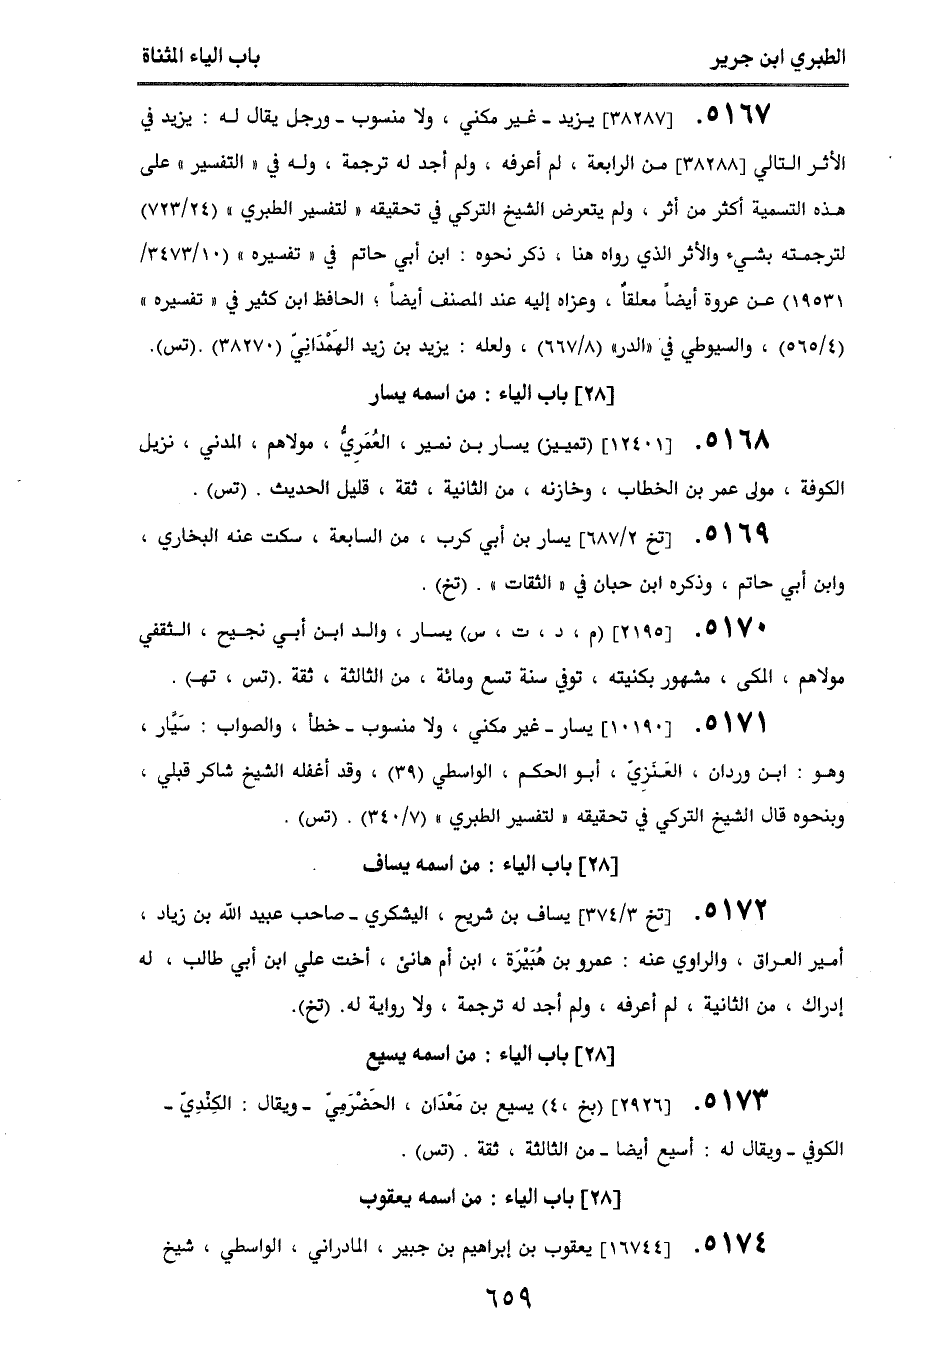 الطبري ابن جرير
باب الياء المثناة
٥١٦٧. [٣٨٢٨٧] يـزيد ـ غير مكني ، ولا منسوب ـ ورجل يقال لـه : يزيد في
الأثـر الـتالي [٣٨٢٨٨] مـن الرابعة ، لم أعرفه ، ولم أجد له ترجمة ، ولـه في « التفسير » على
هـذه التسمية أكثر من أثر ، ولم يتعرض الشيخ التركي في تحقيقه « لتفسير الطبري » (٧٢٣/٢٤)
لترجمـته بشـيء والأثر الذي رواه هنا ، ذكر نحوه : ابن أبي حاتم في « تفسيره » (٣٤٧٣/١٠/
١٩٥٣١) عـن عروة أيضاً معلقاً ، وعزاه إليه عند المصنف أيضاً ؛ الحافظ ابن كثير في « تفسيره »
(٥٦٥/٤) ، والسيوطي في «الدر» (٦٦٧/٨) ، ولعله : يزيد بن زيد الهَمْدَانِيّ (٣٨٢٧٠) .(تس).
[٢٨] باب الياء : من اسمه يسار
٥١٦٨. [١٢٤٠١] (تميـيز) يسار بـن نمير ، العُمَرِيُّ ، مولاهم ، المدني ، نزيل
الكوفة ، مولى عمر بن الخطاب ، وخازنه ، من الثانية ، ثقة ، قليل الحديث . (تس) .
٥١٦٩. [تخ ٦٨٧/٢] يسار بن أبي كرب ، من السابعة ، سكت عنه البخاري ،
وابن أبي حاتم ، وذكره ابن حبان في « الثقات » . (تخ) .
٥١٧٠. [٢١٩٥] (م ، د ، ت ، س) يسـار ، والـد ابـن أبـي نجيح ، الـثقفي
مولاهم ، المكى ، مشهور بكنيته ، توفي سنة تسع ومائة ، من الثالثة ، ثقة .(تس ، تهـ) .
٥١٧١. [١٠١٩٠] يسار ـ غير مكني ، ولا منسوب ـ خطأ ، والصواب : سَيَّار ،
وهـو : ابـن وردان ، العَـنَـزِيّ ، أبـو الحكـم ، الواسطي (٣٩) ، وقد أغفله الشيخ شاكر قبلي ،
وبنحوه قال الشيخ التركي في تحقيقه « لتفسير الطبري » (٣٤٠/٧) . (تس) .
[٢٨] باب الياء : من اسمه يساف
٥١٧٢. [تخ ٣٧٤/٣] يساف بن شريح ، اليشكري ـ صاحب عبيد الله بن زياد ،
أمير العراق ، والراوي عنه : عمرو بن هُبَيْرَة ، ابن أم هانئ ، أخت علي ابن أبي طالب ، له
إدراك ، من الثانية ، لم أعرفه ، ولم أجد له ترجمة ، ولا رواية له. (تخ).
[٢٨] باب الياء : من اسمه يسيع
٥١٧٣. [٢٩٢٦] (بخ ،٤) يسيع بن مَعْدَان ، الحَضْرَمِيّ ـ ويقال : الكِنْدِيّ ـ
الكوفي ـ ويقال له : أسيع أيضا ـ من الثالثة ، ثقة . (تس) .
[٢٨] باب الياء : من اسمه يعقوب
٥١٧٤. [١٦٧٤٤] يعقوب بن إبراهيم بن جبير ، المادراني ، الواسطي ، شيخ
٦٥٩